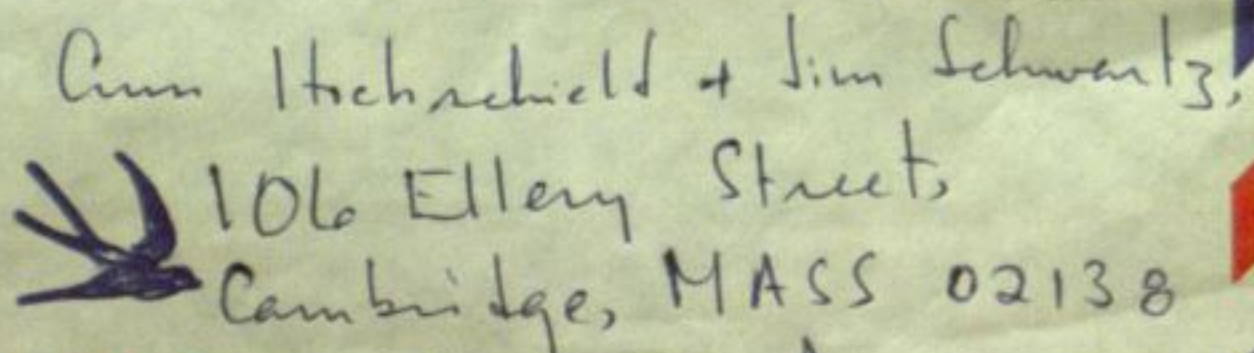 Ann Hochschield + Jim Schwartz,
106 Ellery Street,
Cambridge, MASS 02138